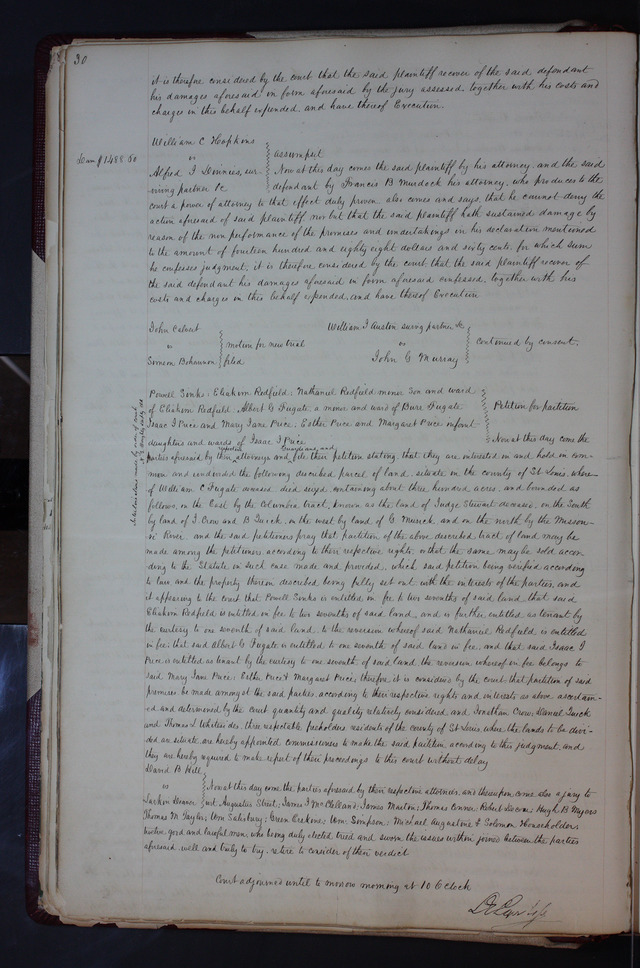 30
it is therefore considered by the court that the said plaintiff recover of the said defendant
his damages aforesaid in form aforesaid by the jury assessed, together with his costs and
charges in this behalf expended, and have thereof Execution
William C Hopkins
vs
assumpsit
Dam $1488 60
Alfred J sur-
Now at this day comes the said plaintiff by his attorney, and the said
viving partner &c
defendant by Francis B Murdock his attorney, who produces to the
court a power of attorney to that effect duly proven also comes and says, that he cannot deny the
action aforesaid of said plaintiff nor but that the said plaintiff hath sustained damage by
reason of the non performance of the promises and undertakings in his declaration mentioned
to the amount of fourteen hundred and eighty eight dollars and sixty cents, for which sum
he confesses judgment, it is therefore considered by the court, that the said plaintiff recover of
the said defendant his damages aforesaid in form aforesaid confessed, together with his
costs and charges in this behalf expended, and have thereof Execution
John Calvert
vs
motion for new trial
filed
Bohannon
William T Austin surving partner &c
vs
John C Murray
continued by consent.
Powell : Eliakem Redfield : Nathaniel Redfield minor Son and ward
of Eliakem Redfield, Albert G Fugate a minor and ward of Fugate
Petition for partition
Isaac J Price and Mary Jane Price, Esther Price and Margaret Price infant
daughters and wards of Isaac J Price
Now at this day come the
respective
Guardians, and
parties aforesaid by their attorneys and file their petition stating, that they are interested in and hold in com-
mon and undivided the following described parcel of land, situate in the county of St Louis, where-
of William C Fugate deceased died seized, containing about three hundred acres, and bounded as
follows, on the East by the Columbia tract, known as the land of Judge Stewart deceased, on the South
by land of J. Crow and B Quick, on the west by land of C and on the north by the Missou-
ri River and the said petitioners pray that partition of the above described tract of land may be
made among the petitioners according to their respective rights, or that the same may be sold accor-
ding to the Statute in such case made and provided, which said petition being verified according
to law and the property therein described being fully set out with the interests of the parties, and
it appearing to the court that Powell is entitled in fee to two sevenths of said land, that said
Eliakem Redfield is entitled in fee to two sevenths of said land, and is further entitled, as tenant by
the curtesy to one seventh of said land, to the reversion whereof said Nathaniel Redfield is entitled
in fee: that said Albert G Fugate is entitled to one seventh of said land in fee, and that said Isaac J
Price is entitled as tenant by the curtesy to one seventh of said land, the reversion whereof in fee belongs to
said Mary Jane Price: Esther Price & Margaret Price, therefore it is considered by the court that partition of said
premises be made amongst the said parties, according to their respective rights and interests as above ascertain-
ed and determined by the court quantity and quality relatively considered, and Jonathan Crow, Daniel Quick
and Thomas L Whitesides, three respectable freeholders residents of the county of St Louis, where the lands to be divi-
ded are situate, are hereby appointed commissioners to make the said partition according to this judgment, and
they are hereby required to make report of their proceedings to this court without delay
David B Hill
vs
Now at this day come the parties aforesaid by their respective attorneys, and thereupon come also a jury to
wit, Augustus Street; James J McClelland; James Marton; Thomas Conner; Robert; Hugh B Myers
Thomas M Taylor; Wm Salisbury; Green Erskine; Wm. Simpson; Michael Augustine & Solomon Householder,
twelve good and lawful men, who being duly elected tried and sworn the issues within joined between the parties
aforesaid well and truly to try, retire to consider of their verdict
Court adjourned until to morrow morning at 10 O clock